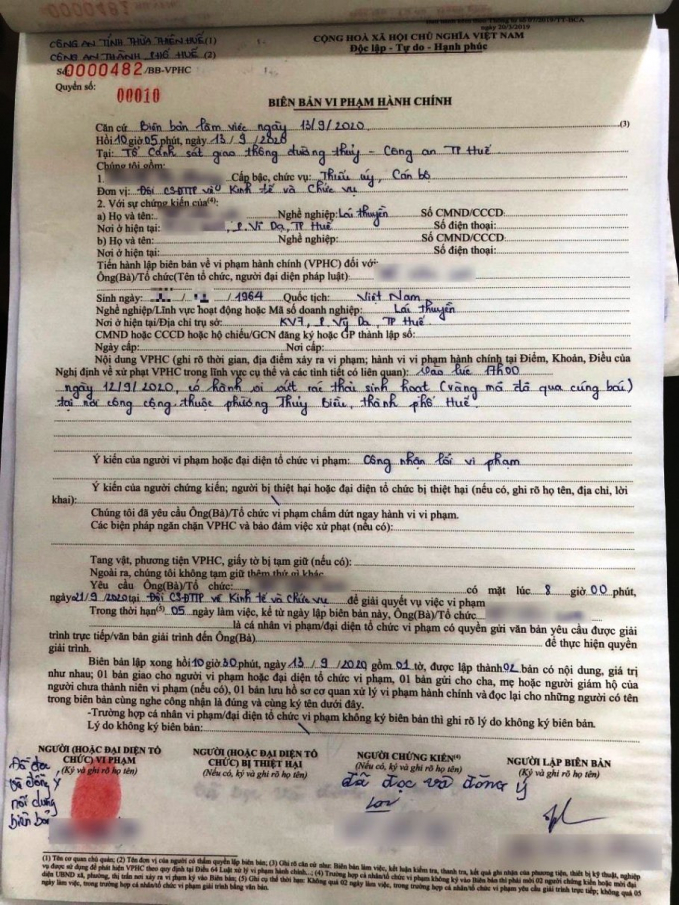 20/3/2019
CÔNG AN TỈNH THỪA THIÊN HUẾ(1)
CÔNG AN THÀNH PHỐ HUẾ (2)
CỘNG HOÀ XÃ HỘI CHỦ NGHĨA VIỆT NAM
Độc lập - Tự do - Hạnh phúc
Số 0000482/BB-VPHC
Quyển số: 00010
BIÊN BẢN VI PHẠM HÀNH CHÍNH
Căn cứ Biên bản làm việc ngày 13/9/2020 (3)
Hồi 10 giờ 05 phút, ngày 13/9/2020
Tại: Tổ Cảnh sát giao thông đường thủy - Công an TP Huế
Chúng tôi gồm:
1. Cấp bậc, chức vụ: Thiếu úy, Cán bộ
Đơn vị: Đội CSĐTTP về Kinh tế và Chức vụ
2. Với sự chứng kiến của(4):
a) Họ và tên: Nghề nghiệp: Lái thuyền Số CMND/CCCD
Nơi ở hiện tại: P. Vĩ Dạ, TP Huế Số điện thoại:
b) Họ và tên: Nghề nghiệp: Số CMND/CCCD
Nơi ở hiện tại: Số điện thoại:
Tiến hành lập biên bản về vi phạm hành chính (VPHC) đối với
Ông(Bà)/Tổ chức(Tên tổ chức, người đại diện pháp luật)
Sinh ngày: / /1964 Quốc tịch: Việt Nam
Nghề nghiệp/Lĩnh vực hoạt động hoặc Mã số doanh nghiệp: Lái thuyền
Nơi ở hiện tại/Địa chỉ trụ sở: KV7, P. Vỹ Dạ, TP Huế
CMND hoặc CCCD hoặc hộ chiếu/GCN đăng ký hoặc GP thành lập số:
Ngày cấp: Nơi cấp:
Nội dung VPHC (ghi rõ thời gian, địa điểm xảy ra vi phạm; hành vi vi phạm hành chính tại Điểm, Khoản, Điều của
Nghị định về xử phạt VPHC trong lĩnh vực cụ thể và các tình tiết có liên quan): Vào lúc 17h00
ngày 12/9/2020, có hành vi vứt rác thải sinh hoạt (vàng mã đã qua cúng bái)
tại nơi công cộng thuộc phường Thủy Biều, thành phố Huế.
Ý kiến của người vi phạm hoặc đại diện tổ chức vi phạm: Công nhận lỗi vi phạm
Ý kiến của người chứng kiến; người bị thiệt hại hoặc đại diện tổ chức bị thiệt hại (nếu có, ghi rõ họ tên, địa chỉ, lời
khai):
Chúng tôi đã yêu cầu Ông(Bà)/Tổ chức vi phạm chấm dứt ngay hành vi vi phạm.
Các biện pháp ngăn chặn VPHC và bảo đảm việc xử phạt (nếu có):
Tang vật, phương tiện VPHC, giấy tờ bị tạm giữ (nếu có):
Ngoài ra, chúng tôi không tạm giữ thêm thứ gì khác.
Yêu cầu Ông(Bà)/Tổ chức: có mặt lúc 8 giờ 00 phút,
ngày 21/9/2020 tại Đội CSĐTTP về Kinh tế và Chức vụ để giải quyết vụ việc vi phạm
Trong thời hạn(5) 05 ngày làm việc, kể từ ngày lập biên bản này, Ông(Bà)/Tổ chức
là cá nhân vi phạm/đại diện tổ chức vi phạm có quyền gửi văn bản yêu cầu được giải
trình trực tiếp/văn bản giải trình đến Ông(Bà) để thực hiện quyền
giải trình.
Biên bản lập xong hồi 10 giờ 30 phút, ngày 13/9/2020 gồm 01 tờ, được lập thành 02 bản có nội dung, giá trị
như nhau; 01 bản giao cho người vi phạm hoặc đại diện tổ chức vi phạm, 01 bản gửi cho cha, mẹ hoặc người giám hộ của
người chưa thành niên vi phạm (nếu có), 01 bản lưu hồ sơ cơ quan xử lý vi phạm hành chính và đọc lại cho những người có tên
trong biên bản cùng nghe công nhận là đúng và cùng ký tên dưới đây.
-Trường hợp cá nhân vi phạm/đại diện tổ chức vi phạm không ký biên bản thì ghi rõ lý do không ký biên bản.
Lý do không ký biên bản:
NGƯỜI (HOẶC ĐẠI DIỆN TỔ
CHỨC) VI PHẠM
(Ký và ghi rõ họ tên)
Đã đọc
và đồng ý
nội dung
biên bản
NGƯỜI (HOẶC ĐẠI DIỆN TỔ
CHỨC) BỊ THIỆT HẠI
(Nếu có, ký và ghi rõ họ tên)
NGƯỜI CHỨNG KIẾN(4)
(Nếu có, ký và ghi rõ họ tên)
đã đọc và đồng ý
NGƯỜI LẬP BIÊN BẢN
(Ký và ghi rõ họ tên)